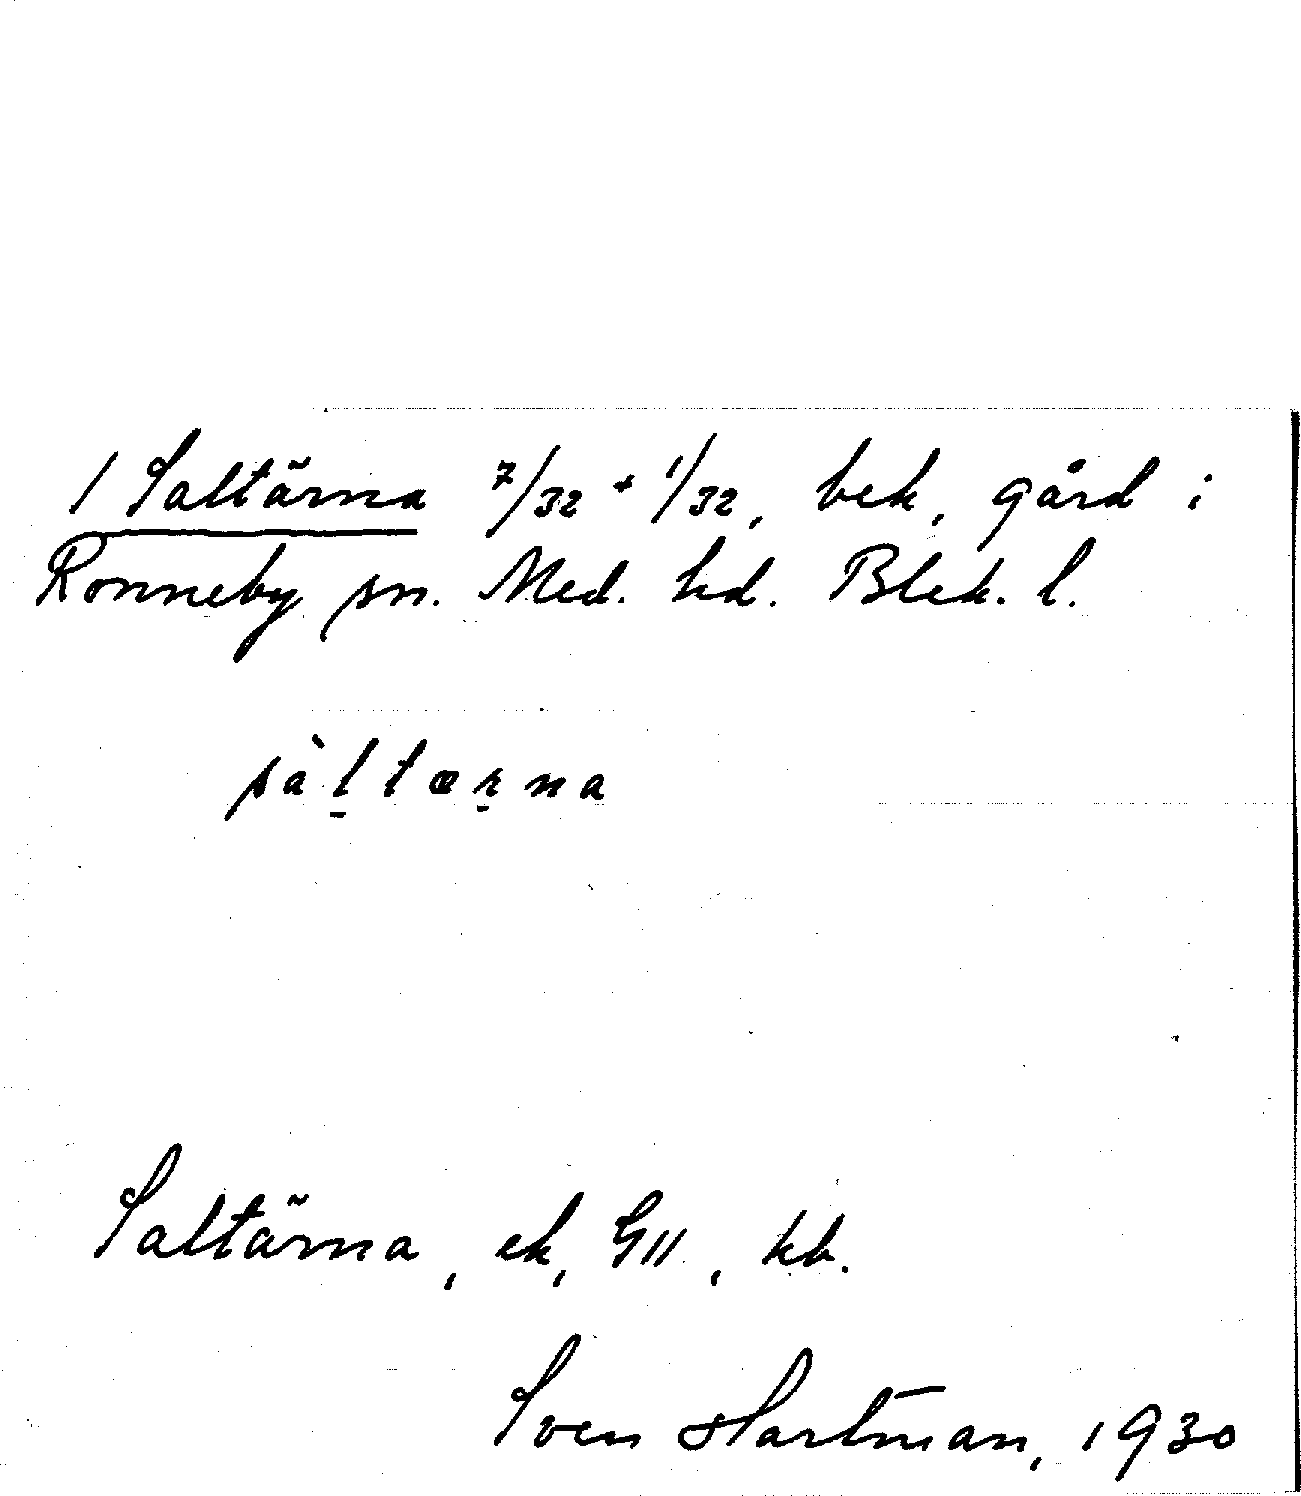 1 Saltärna 7/32 + 1/32, bek, gård i
Ronneby sn. Med. hd. Blek. l.
sàl̠tær̠na
Saltärna, ek, GII, kb.
Sven Hartman, 1930